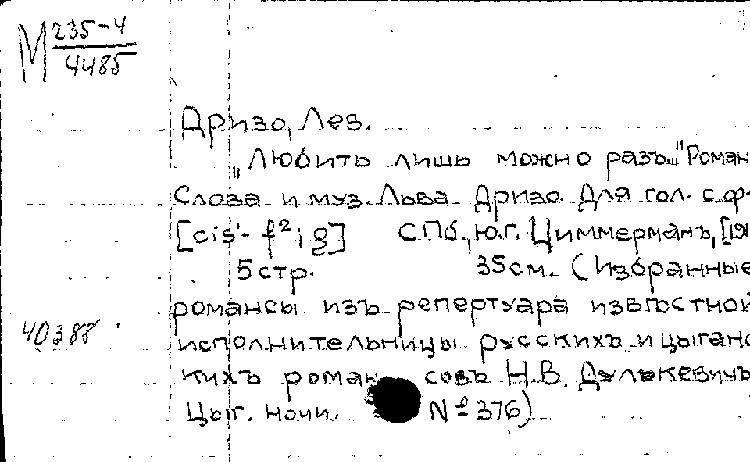 М 235-4
4485
Дризо, Лев.
„Любить лишь можно разъ..." Роман
Слова и муз. Льва Дризо. Для гол. с ф-
[cis¹- f²; g] СПб., Ю.Г. Циммерманъ, [191
5 стр. 35 см. (Избранные
романсы изъ репертуара извѣстной
40388
исполнительницы русскихъ и цыганс
кихъ роман совъ Н.В. Дулькевичъ
Цыг. ночи. № 376)